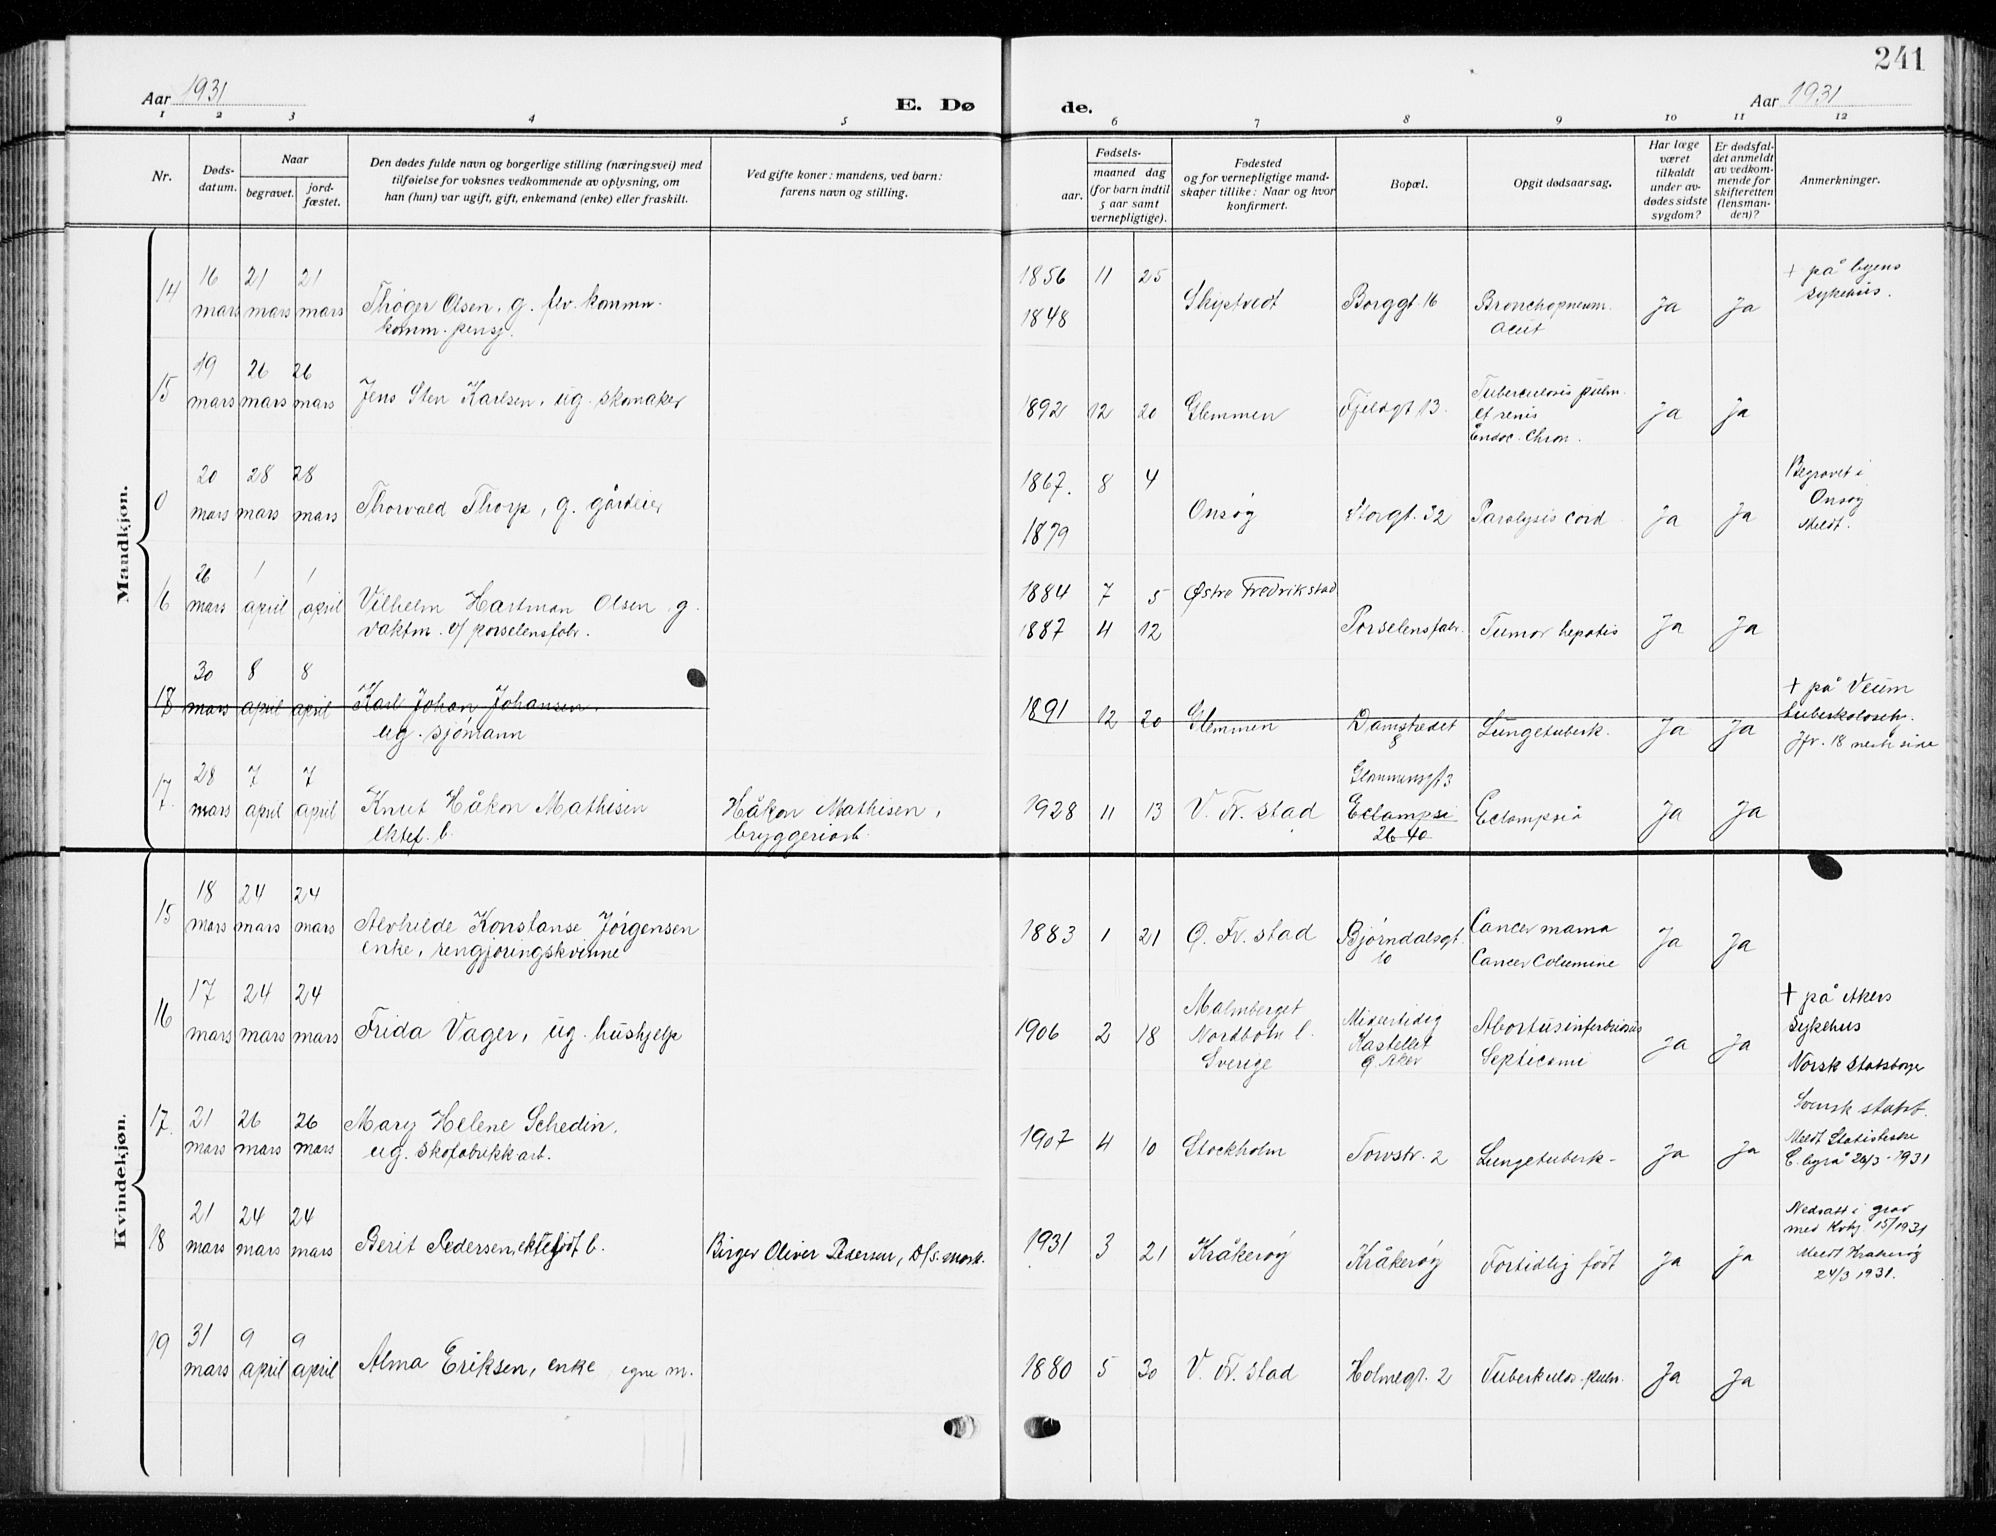 241
Aar 1931
E. Dø
de.
Aar 1931
1 2 3 4 5 6 7 8 9 10 11 12
Nr.
Døds-
datum.
Naar
begravet.
jord-
fæstet.
Den dødes fulde navn og borgerlige stilling (næringsvei) med
tilføielse for voksnes vedkommende av oplysning, om
han (hun) var ugift, gift, enkemand (enke) eller fraskilt.
Ved gifte koner: mandens, ved barn:
farens navn og stilling.
Fødsels-
aar.
maaned dag
(for barn indtil
5 aar samt
vernepligtige).
Fødested
og for vernepligtige mand-
skaper tillike: Naar og hvor
konfirmert.
Bopæl.
Opgit dødsaarsag.
Har læge
været
tilkaldt
under av-
dødes sidste
sygdom?
Er dødsfal-
det anmeldt
av vedkom-
mende for
skifteretten
(lensman-
den)?
Anmerkninger.
Mandkjøn.
14 16 mars 21 mars 21 mars
Thøger Olsen, g. flv. kommu.
komm. pensj.
1856 11 25
1848
Skiptvedt
Borggt. 16
Bronchopneum.
acut
Ja Ja
+ på byens
sykehus.
15 19 mars 26 mars 26 mars
Jens Sten Karlsen, ug. skomaker
1892 12 20
Glemmen
Fjeldgt 13.
Tuberculosis pulm.
et renis
Endoc. Chron.
Ja Ja
0 20 mars 28 mars 28 mars
Thorvald Thorp, g. gårdeier
1867. 8 4
1879
Onsøy
Storgt. 32
Paralysis cord
Ja Ja
Begravet i
Onsøy
Meldt.
16 26 mars 1 april 1 april
Vilhelm Hartman Olsen g.
vaktm. v/ porselensfabr.
1884 7 5
1887 4 12
Østre Fredrikstad
Porselensfabr.
Tumor hepatis
Ja Ja
17 30 mars 8 april 8 april
Karl Johan Johansen.
ug. sjømann
1891 12 20
Glemmen
Damstredet
8
Lungetuberk.
Ja Ja
+ på Veum
tuberkolosehj.
Jfr. 18 neste side
17. 28 mars 7 april 7 april
Knut Håkon Mathisen
ektef. b.
Håkon Mathisen,
bryggeriarb.
1928 11 13
V. Fr. stad
Glommensgt 3
Eclampsi
26 40
Eclampsia
Ja Ja
Kvindekjøn.
15 18 mars 24 mars 24 mars
Alvhilde Konstanse Jørgensen
enke, rengjøringskvinne
1883 1 21
Ø. Fr. stad
Bjørndalsgt.
10
Cancer mama
Cancer Columine
Ja Ja
16 17 mars 24 mars 24 mars
Frida Vager, ug. hushjelp
1906 2 18
Malmberget
Nordbotn l.
Sverige
Midlertidig
Kastellet
Ø. Aker
Abortus infectiosus
Septicemi
Ja Ja
+ på Akers
sykehus
Norsk Statsborger
17. 21 mars 26 mars 26 mars
Mary Helene Schedin,
ug. skofabrikkarb.
1907 4 10
Stockholm
Torvstr. 2
Lungetuberk-
Ja Ja
Svensk statsb.
Meldt Statistiske
C. byrå 26/3 - 1931
18 21 mars 24 mars 24 mars
Berit Pedersen, ektefødt b.
Birger Oliver Pedersen, D/s. mask.
1931 3 21
Kråkerøy
Kråkerøy
Fortidlig født
Ja Ja
Nedsatt i grav
med Kvkj. 15/1931
Meldt Kråkerøy
24/3 1931.
19 31 mars 9 april 9 april
Alma Eriksen, enke, egne m.
1880 5 30
V. Fr. stad
Holmegt. 2
Tuberkulos. pulm.
Ja Ja